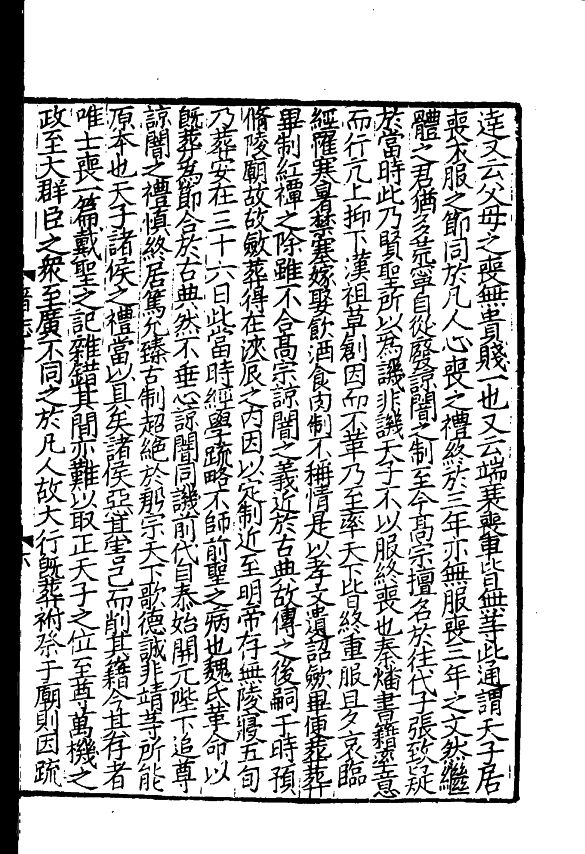 達又云父母之喪無貴賤一也又云端衰喪車皆無等此通謂天子居
喪衣服之節同於凡人心喪之禮終於三年亦無服喪三年之文然繼
體之君猶多荒寧自從廢諒闇之制至令髙宗擅名於往代子張致疑
於當時此乃賢聖所以為譏非譏天子不以服終喪也秦燔書籍率意
而行亢上抑下漢祖草創因而不革乃至率天下皆終重服旦夕哀臨
經罹寒暑禁塞嫁娶飲酒食肉制不稱情是以孝文遺詔斂畢便葬葬
畢制紅禫之除雖不合髙宗諒闇之義近於古典故傳之後嗣于時預
脩陵廟故斂葬得在浹辰之内因以定制近至明帝存無陵寢五旬
乃葬安在三十六日此當時經學疏略不師前聖之病也魏氏革命以
旣葬為節合於古典然不垂心諒闇同譏前代自泰始開元陛下追尊
諒闇之禮慎終居篤允臻古制超絶於殷宗天下歌德誠非靖等所能
原本也天子諸侯之禮當以具矣諸侯惡其害己而削其籍今其存者
唯士喪一篇戴聖之記雜錯其間亦難以取正天子之位至尊萬機之
政至大群臣之衆至廣不同之於凡人故大行旣葬祔祭于廟則因疏